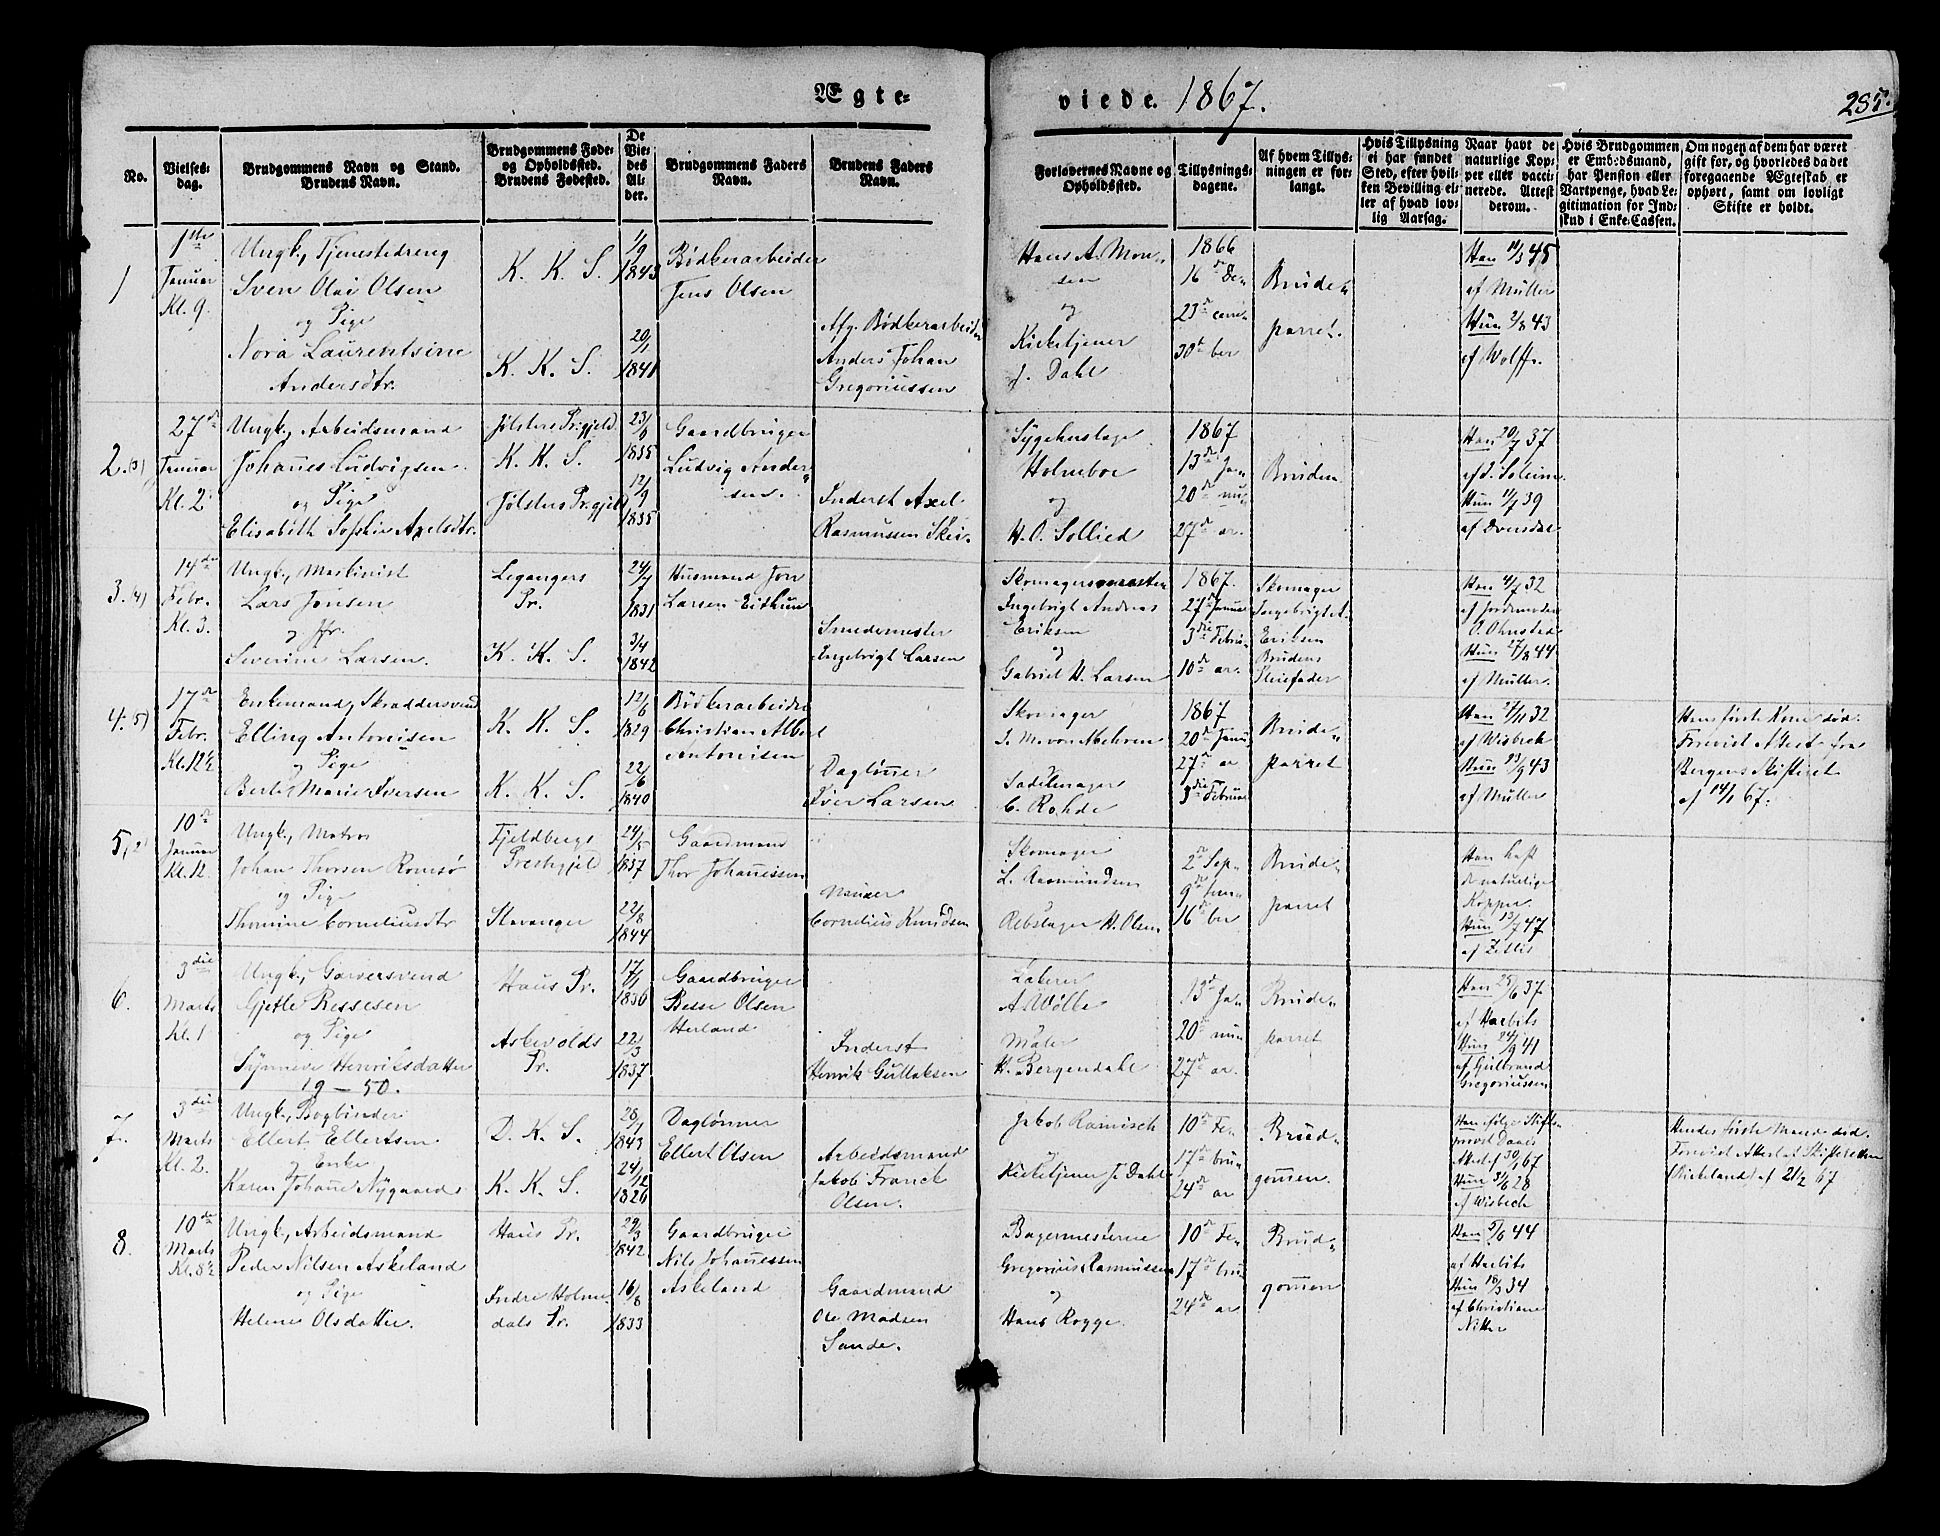 Ægte=
viede. 1867.
285.
No.
Vielses-
dag.
Brudgommens Navn og Stand.
Brudens Navn.
Brudgommens Føde-
og Opholdssted.
Brudens Fødested.
De
Vie-
des
Al-
der.
Brudgommens Faders
Navn.
Brudens Faders
Navn.
Forlovernes Navne og
Opholdssted.
Tillysnings-
dagene.
Af hvem Tillys-
ningen er for-
langt.
Hvis Tillysning
ei har fundet
Sted, efter hvil-
ken Bevilling el-
ler af hvad lov-
lig Aarsag.
Naar havt de
naturlige Kop-
per eller vacci-
nerede. Attest
derom.
Hvis Brudgommen
er Embedsmand,
har Pension eller
Vartpenge, hvad Le-
gitimation for Ind-
skud i Enke-Cassen.
Om nogen af dem har været
gift for, og hvorledes da det
foregaaende Ægteskab er
ophørt, samt om lovligt
Skifte er holdt.
1
1ste
Januar
Kl. 9.
Ungk., Tjenestedreng
Sven Olai Olsen
og Pige
Nora Laurentsine
Andersdtr.
K. K. S.
K. K. S.
1/9
1843
20/1
1841
Bødkerarbeider
Jens Olsen
Afg. Bødkerarbeider
Anders Johan
Gregoriussen
Hans A. Mon-
sen
og
Kirketjener
J. Dahl
1866
16de De-
23de cem-
30te ber
Brude-
parret.
Han 11/3 45
af Müller
Hun 2/8 43
af Wolff.
2. (3)
27de
Januar
Kl. 2
Ungk., Arbeidsmand
Johannes Ludvigsen
og Pige
Elisabeth Sophie Axelsdtr.
Jølsters Prgjeld
K. K. S.
Jølsters Prgjeld
23/6
1835
12/9
1835
Gaardbruger
Ludvig Ander-
sen.
Inderst Axel
Rasmussen Skei.
Sygehuslæge
Holmboe
og
H. O. Sollied
1867
13de Ja-
20de nu-
27de ar.
Bruden
Han 20/7 37
af J. Soleim
Hun 11/7 39
af Dvergsdal
3. (4)
14de
Febr.
Kl. 3.
Ungk., Maskinist
Lars Jonsen
og Jfr.
Severine Larsen.
Leganger's
Pr.
K. K. S.
24/7
1831
3/4
1842
Husmand Jon
Larsen Eithun
Smedemester
Ingebrigt Larsen
Skomagermester
Ingebrigt Andreas
Eriksen
og
Gabriel H. Larsen
1867.
27de Januar
3die Febru-
10de ar.
Skomager
Ingebrigt A.
Eriksen
Brudens
Pleiefader
Han 4/7 32
af Jordemoder
O. Ohnstad
Hun 27/8 44
af Müller.
4. (5)
17de
Febr.
Kl. 12½
Enkemand, Skræddersvend
Elling Antonisen
og Pige
Berthe Marie Iversen
K. K. S.
K. K. S.
12/6
1829
22/6
1840
Bødkerarbeider
Christian Albert
Antonisen
Dagløner
Iver Larsen
Skomager
J. M. von Mehren
og
Sadelmager
C. Rohde
1867
20de Janu
27de ar
3die Februar
Brude-
parret
Han 24/11 32
af Wisbech
Hun 23/9 43
af Müller
Hans første Kone død.
Forevist Attest fra
Bergens Skifteret
af 14/1 67.
5, (2)
10de
Januar
Kl. 12
Ungk., Matros
Johan Thorsen Romsø
og Pige
Thomine Corneliusdtr
Fjeldbergs
Prestegjeld
Stavanger
24/5
1837
22/8
1844
Gaardmand
Thor Johannessen
Murer
Cornelius Knudsen
Skomager
L. Rasmundsen
og
Rebslager H. Olsen
2de Sep-
9de tem-
16de ber
Brude-
parret
Han haft
de naturlige
Kopper
Hun 13/7 47
af Zetlis
6.
3die
Marts
Kl. 1
Ungk., Garversvend
Gjetle Bessesen
og Pige
Synneve Henriksdatter
19 — 50.
Haus Pr.
Askevolds
Pr.
17/1
1836
22/3
1837
Gaardbruger
Besse Olsen
Herland
Inderst
Henrik Gullaksen
Lakerer
A. Wølle
og
Maler
H. Bergendahl
13de Ja-
20de nu
27de ar.
Brude-
parret
Han 25/6 37
af Harbits
Hun 24/9 41
af Gulbrand
Gregoriussen
7.
3die
Marts
Kl. 2.
Ungk., Bogbinder
Ellert Ellertsen
og Enke
Karen Johanne Nygaard
D. K. S.
K. K. S.
28/1
1843
24/12
1826
Dagløner
Ellert Olsen
Arbeidsmand
Jakob Franck
Olsen.
Jakob Ramisch
og
Kirketjener J. Dahl
10de Fe-
17de bru-
24de ar
Brud-
gommen.
Han ifølge Stifts-
provst Daaes
Attest af 30/1 67
Hun 3/6 28
af Wisbech
Hendes første Mand død.
Forevist Attest fra Skifteretten
Birkeland af 21/2 67
8.
10de
Marts
Kl. 8½
Ungk., Arbeidsmand
Peder Nilsen Askeland
og Pige
Helene Olsdatter.
Haus Pr.
Indre Holme-
dals Pr.
29/3
1842
16/8
1833
Gaardbruger
Nils Johannessen
Askeland
Gaardmand
Ole Madsen
Sande.
Bagermesterne
Gregorius Rasmussen
og
Hans Rogge.
10de Fe-
17de bru
24de ar
Brud-
gommen
Han 5/6 44
af Harbits
Hun 18/3 34
af Christiane
Nitter